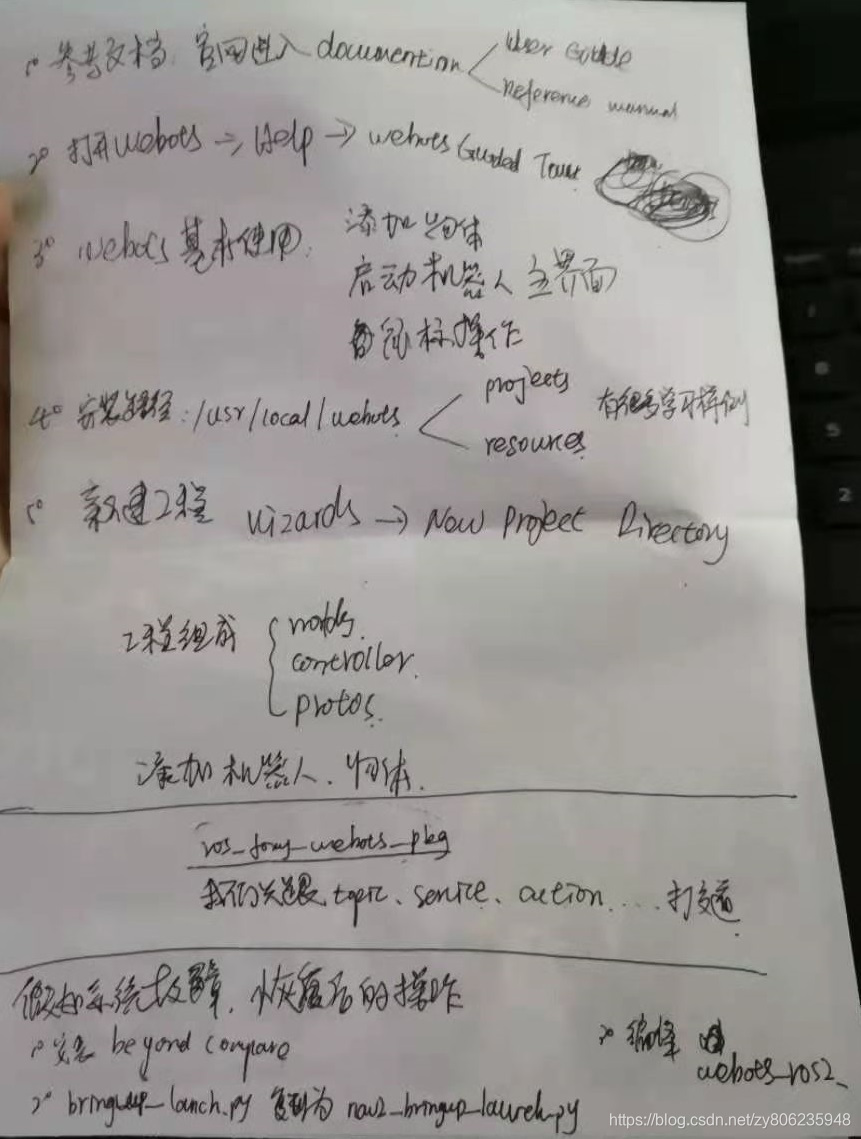 1° 参考文档:官网进入 documention
User Guide
Reference manual
2° 打开webots → Help → webots Guided Tour
3° webots基本使用:
添加物体
启动机器人主界面
鼠标操作
4° 安装路径:/usr/local/webots
projects
resources
有很多学习样例
5° 新建工程 Wizards → New Project Directory
工程组成
worlds
controller
protos
添加机器人、物体
ros_foxy_webots_pkg
我们只要跟 topic、service、action.... 打交道
假如系统故障,恢复后的操作
1° 安装 beyond compare
2° bringup_lanch.py 复制为 nav2_bringup_launch.py
3° 编译
webots_ros2_
https://blog.csdn.net/zy806235948